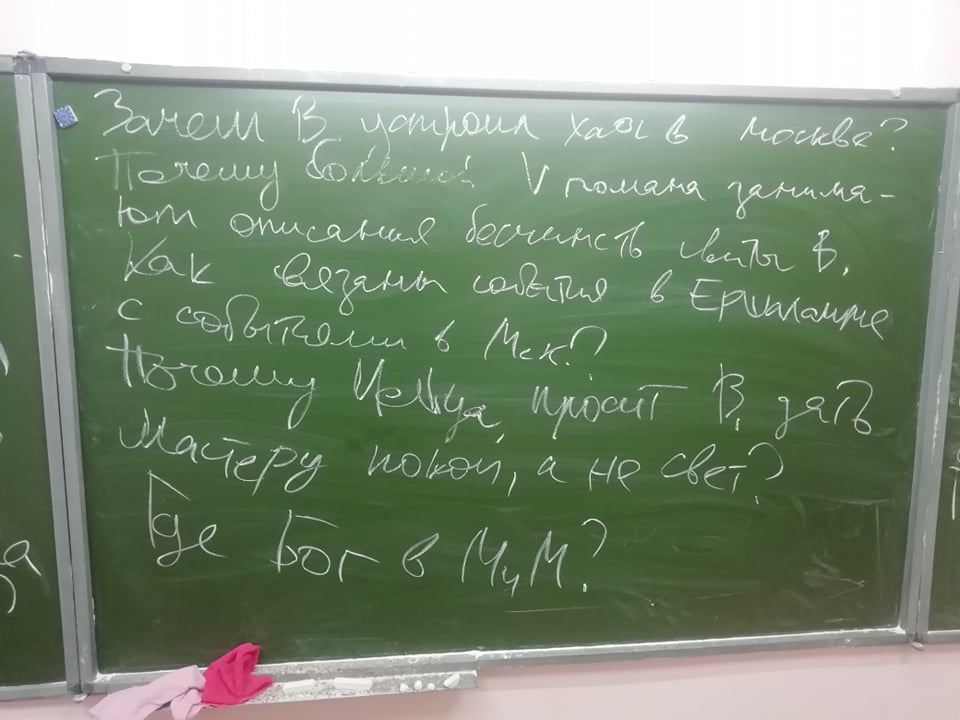 Зачем В. устроил хаос в Москве?
Почему больший V романа занима-
ют описания бесчинств свиты В.
Как связаны события в Ершалаиме
с событиями в Мск?
Почему Иешуа просит В. дать
Мастеру покой, а не свет?
Где Бог в МиМ?